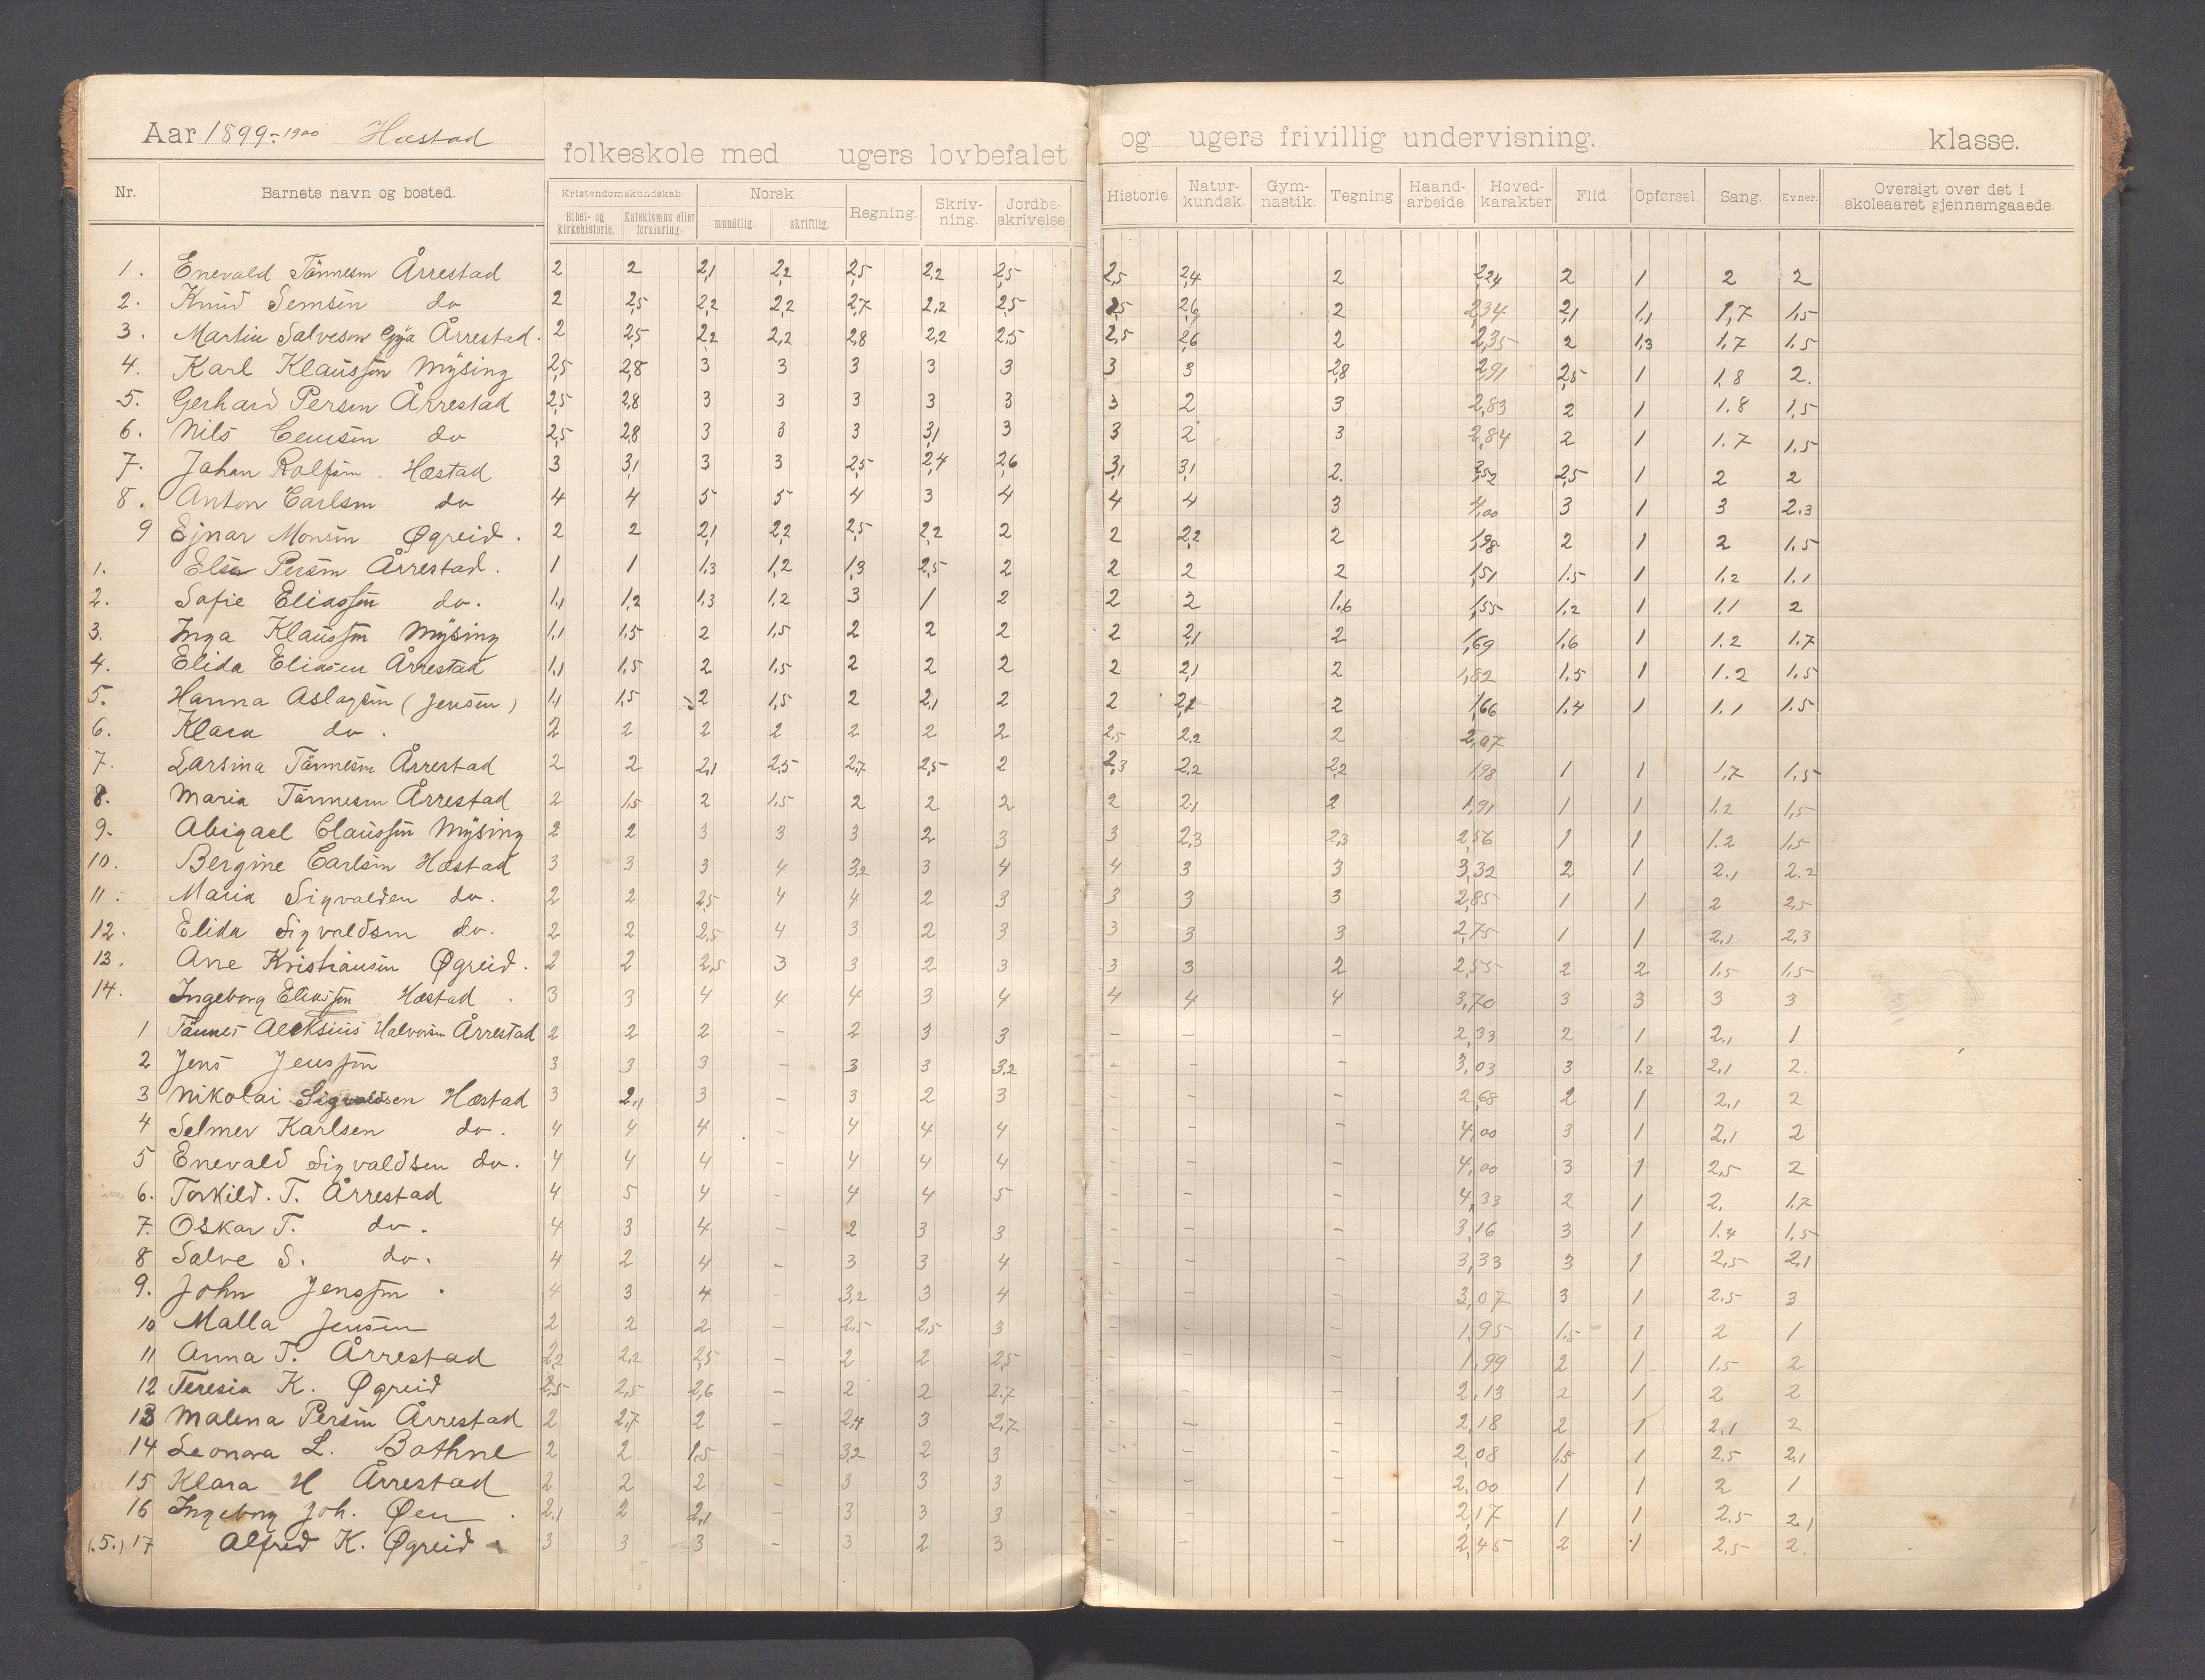 Aar 1899-1900 Hæstad folkeskole med ugers lovbefalet og ugers frivillig undervisning. klasse.
Nr. Barnets navn og bosted. Kristendomskundskab. Bibel- og kirkehistorie. Katekismus eller forklaring. Norsk mundtlig. skriftlig. Regning. Skriv-ning. Jordbe-skrivelse Historie. Natur-kundsk. Gym-nastik. Tegning Haand-arbeide. Hoved-karakter Flid. Opførsel. Sang. Evner. Oversigt over det i skoleaaret gjennemgaaede.
1. Enevald Tönnesen Årrestad 2 2 2,1 2,2 2,5 2,2 2,5 2,5 2,4 2 2,24 2 1 2 2
2. Knud do 2 2,5 2,2 2,2 2,7 2,2 2,5 2,5 2,6 2 2,34 2,1 1,1 1,7 1,5
3. Martin Salvesen Gya Årrestad. 2 2,5 2,2 2,2 2,8 2,2 2,5 2,5 2,6 2 2,35 2 1,3 1.7 1.5
4. Karl Klaussen Mysing 2,5 2,8 3 3 3 3 3 3 3 2,8 2,91 2,5 1 1,8 2.
5. Gerhard Persen Årrestad 2,5 2,8 3 3 3 3 3 3 2 3 2,83 2 1 1.8 1,5
6. Nils do 2,5 2,8 3 3 3 3,1 3 3 2 3 2,84 2 1 1.7 1.5
7. Johan Rolfsen. Hæstad 3 3,1 3 3 2,5 2,4 2,6 3,1 3,1 2. 2,5 1 2 2
8. Anton Carlsen do 4 4 5 5 4 3 4 4 4 3 4,00 3 1 3 2.3
9 Ejnar Monsen Øgreid. 2 2 2,1 2,2 2,5 2,2 2 2 2,2 2 1,98 2 1 2 1.5
1. Elsa Persen Årrestad. 1 1 1,3 1,2 1,3 2,5 2 2 2 2 1,51 1.5 1 1.2 1.1
2. Sofie Eliassen do. 1,1 1,2 1,3 1,2 3 1 2 2 2 1,6 1,55 1.2 1 1.1 2
3. Inga Klaussen Mysing 1,1 1,5 2 1,5 2 2 2 2 2,1 2 1,69 1,6 1 1.2 1.7
4. Elida Eliasen Årrestad 1,1 1,5 2 1,5 2 2 2 2 2,1 2 1,82 1.5 1 1.2 1.5
5. Hanna Aslagsen (Jensen) 1,1 1,5 2 1,5 2 2,1 2 2 2,1 2 1,66 1.4 1 1.1 1.5
6. Klara do. 2 2 2 2 2 2 2 2,5 2,2 2 2,07
7. Larsina Tönnesen Årrestad 2 2 2,1 2,5 2,7 2,5 2 2,3 2,2 2,2 1,98 1 1 1,7 1,5
8. Maria Tönnesen Årrestad 2 1,5 2 1,5 2 2 2 2 2,1 2 1,91 1 1 1.2 1,5
9. Abigael Claussen Mysing 2 2 3 3 3 2 3 3 2,3 2,3 2,56 1 1 1.2 1.5
10. Bergine Carlsen Hæstad 3 3 3 4 3,2 3 4 4 3 3 3,32 2 1 2.1 2.2
11. Maria Sigvalden do. 2 2 2,5 4 4 2 3 3 3 3 2,85 1 1 2 2,5
12. Elida Sigvaldsen do. 2 2 2,5 4 3 2 3 3 3 3 2,75 1 1 2,1 2,3
13. Ane Kristiansen Øgreid. 2 2 2,5 3 3 2 3 3 3 2 2,55 2 2 1,5 1,5
14. Ingeborg Eliassen Hæstad. 3 3 4 4 4 3 4 4 4 4 3,70 3 3 3 3
1 Tönnes Aleksius Halvorsen Årrestad 2 2 2 - 2 3 3 - - - 2,33 2 1 2,1 1
2 Jens Jenssen 3 3 3 - 3 3 3,2 - - - 3,03 3 1.2 2,1 2.
3 Nikolai Sigvaldsen Hæstad 3 2,1 3 - 3 2 3 - - - 2,68 2 1 2,1 2
4 Selmer Karlsen do. 4 4 4 - 4 4 4 - - - 4,00 3 1 2,1 2
5 Enevald Sigvaldsen do. 4 4 4 - 4 4 4 - - - 4,00 3 1 2,5 2
6. Torkild. T. Årrestad 4 5 4 - 4 4 5 - - - 4,33 2 1 2. 1.7
7. Oskar T. do. 4 3 4 - 2 3 3 - - - 3,16 3 1 1.4 1.5
8 Salve S. do. 4 2 4 - 3 3 4 - - - 3,33 3 1 2,5 2,1
9. John Jenssen. 4 3 4 - 3,2 3 4 - - - 3,07 3 1 2.5 3
10 Malla Jensen 2 2 2 - 2,5 2,5 3 - - - 1,95 1.5 1 2 1
11 Anna T. Årrestad 2,2 2,2 2,5 - 2 2 2,5 - - - 1,99 2 1 1.5 2
12 Teresia K. Øgreid 2,5 2,5 2,6 - 2 2 2.7 - - - 2,13 2 1 2 2
13 Malena Persen Årrestad 2 2,7 2 - 2,4 3 2,7 - - - 2,18 2 1 2,1 2
14 Leonora L. Bothne 2 2 1,5 - 3,2 2 3 - - - 2,08 1,5 1 2.5 2,1
15 Klara H Årrestad 2 2 2 - 3 3 3 - - - 2,00 1 1 2 1
16 Ingeborg Joh. Øen. 2,1 2 2,1 - 3 3 3 - - - 2,17 1 1 2.5 2,1
(.5.) 17 Alfred K. Øgreid 3 3 3 - 3 2 3 - - - 2,45 2 1 2,5 2.